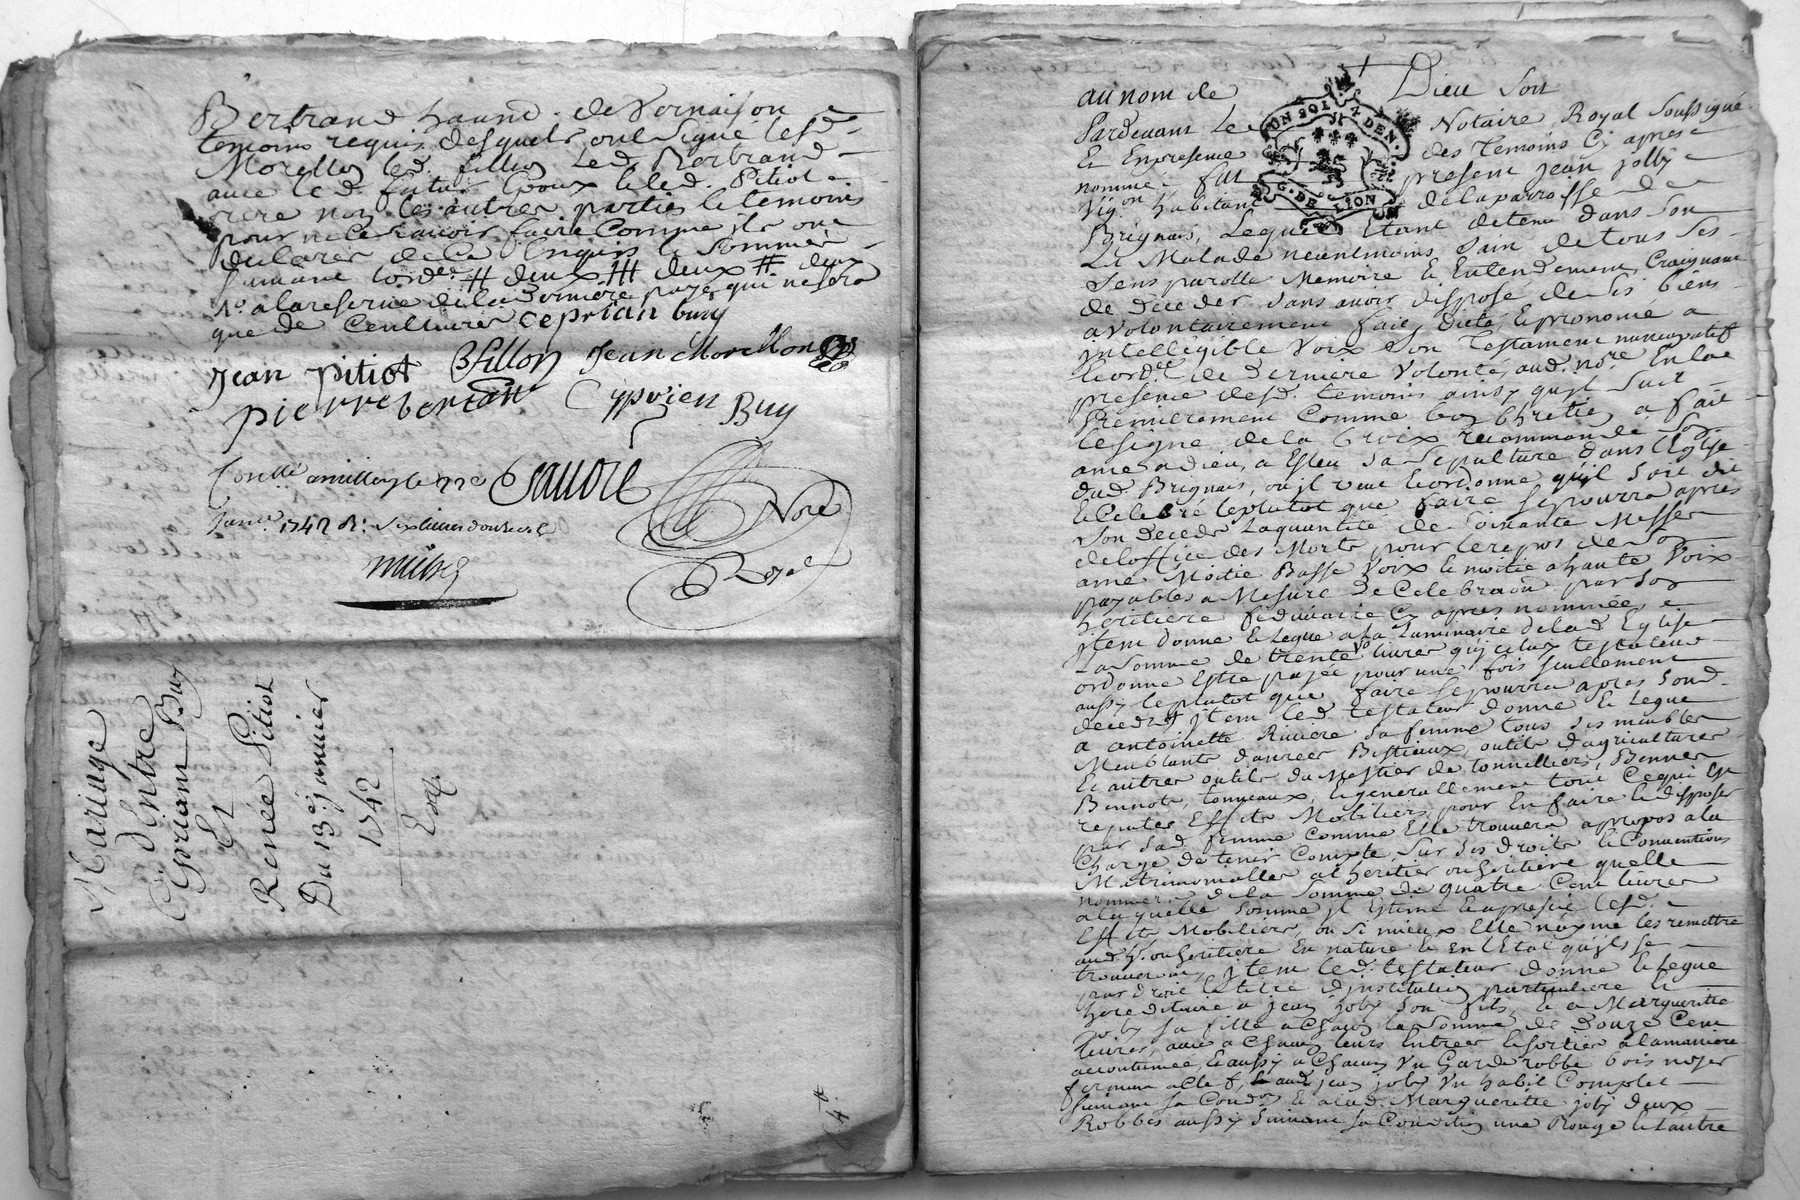 Bertrand haund. de Vernaison
temoins requis desquels ont signé lesd.
Morellon led. fillion Led. Bertrand
avec led. futur Epoux & led. Pitiot
non les autres parties & temoins
pour ne le scavoir faire Comme ils ont
declarer de Ce Enquis & sommés
suivant lord.ce # deux # deux # deux
à la reserve de la derniere page qui ne sera
que de Cent livres ceprian buy
Jean pitiot Bfillon Jean Morellon
pierre bertrant Cyprien Buy
Conllé a millery le
Janv. 1742 R: six livres douze s
Nore
Royal
Mariage
d'Entre
Cyprian Buy
Et
Renée Pitiot
Du 13e janvier
1742
Exp.
4 #
au nom de Dieu soit
UN SOL 4 DEN.
G. DE LION
Pardevant Le Notaire Royal soussigné
Et En presence des Temoins Cy apres
nommés fut present jean jolly
Vig.on habitant de la parroisse de
Brignais, Lequel Etant detenu dans son
Lit Malade neantmoins sain de tous ses
sens parolle Memoire & Entendement, Craignant
de Deceder sans avoir disposé de ses biens
a volontairement fait, dicté, & prononcé a
jntelligible Voix son Testament nuncupatif
& ord.ce de Derniere Volonté, aud. no.re En la
presence desd. temoins ainsy qu'jl suit
Premierement Comme bon Chretien a fait
le signe de la Croix recommandé son
ame a dieu, a Esleu sa sepulture dans l'Eglise
dud. Brignais, ou jl veut & ordonne qu'jl soit dit
& Celebré le plutot que faire se pourra apres
son Decede La quantité de soixante Messes
de l'office des Morts pour le repos de son
ame Moitié Basse Voix & moitié a haute Voix
payables a Mesure De Celebraon par son
heritiere fiduciaire Cy apres nommée,
jtem donne & Legue a La Luminaire de lad. Eglise
La somme de trente livres qu'jceluy testateur
ordonne Estre payée pour une fois seullement
aussy le plutot que faire se pourra apres sond.
decedz jtem led. testateur donne & Legue
a antoinette Riviere sa femme tous ses meubles
Meublants danrées Bestiaux, outils d'agriculture
Et autres outils du Mestier de tonnelliers, Bennes
Bennots, tonneaux, & generallement tout Ce qui Est
reputés Effets Mobiliers, pour En faire & disposer
par sad. femme Comme Elle trouvera a propos a la
Charge de tenir Compte sur ses droits & Conventions
Matrimonialles a l'heritier ou heritiere quelle
nommera de la somme de quatre Cent livres
a laquelle somme jl Estime & apresie lesd.
Effets Mobiliers, ou si mieux Elle n'ayme les remettre
aud. h. ou heritiere En nature & en l'Etat qu'jls se
trouveront, jtem led. testateur donne & Legue
par droit & titre d'jnstitution particuliere &
hereditaire a jean joly son fils, & a Margueritte
joly sa fille a Chacun la somme de Douze Cent
livres, avec a Chacun leurs Entrées & sorties a la maniere
accoutumée, & aussy a Chacun Un Garderobbe bois noyer
fermant a Clef, & aud. jean joly Un habit Complet
suivant sa Cond.on & a lad. Margueritte joly deux
Robbes aussy suivant sa Condition une Rouge & lautre